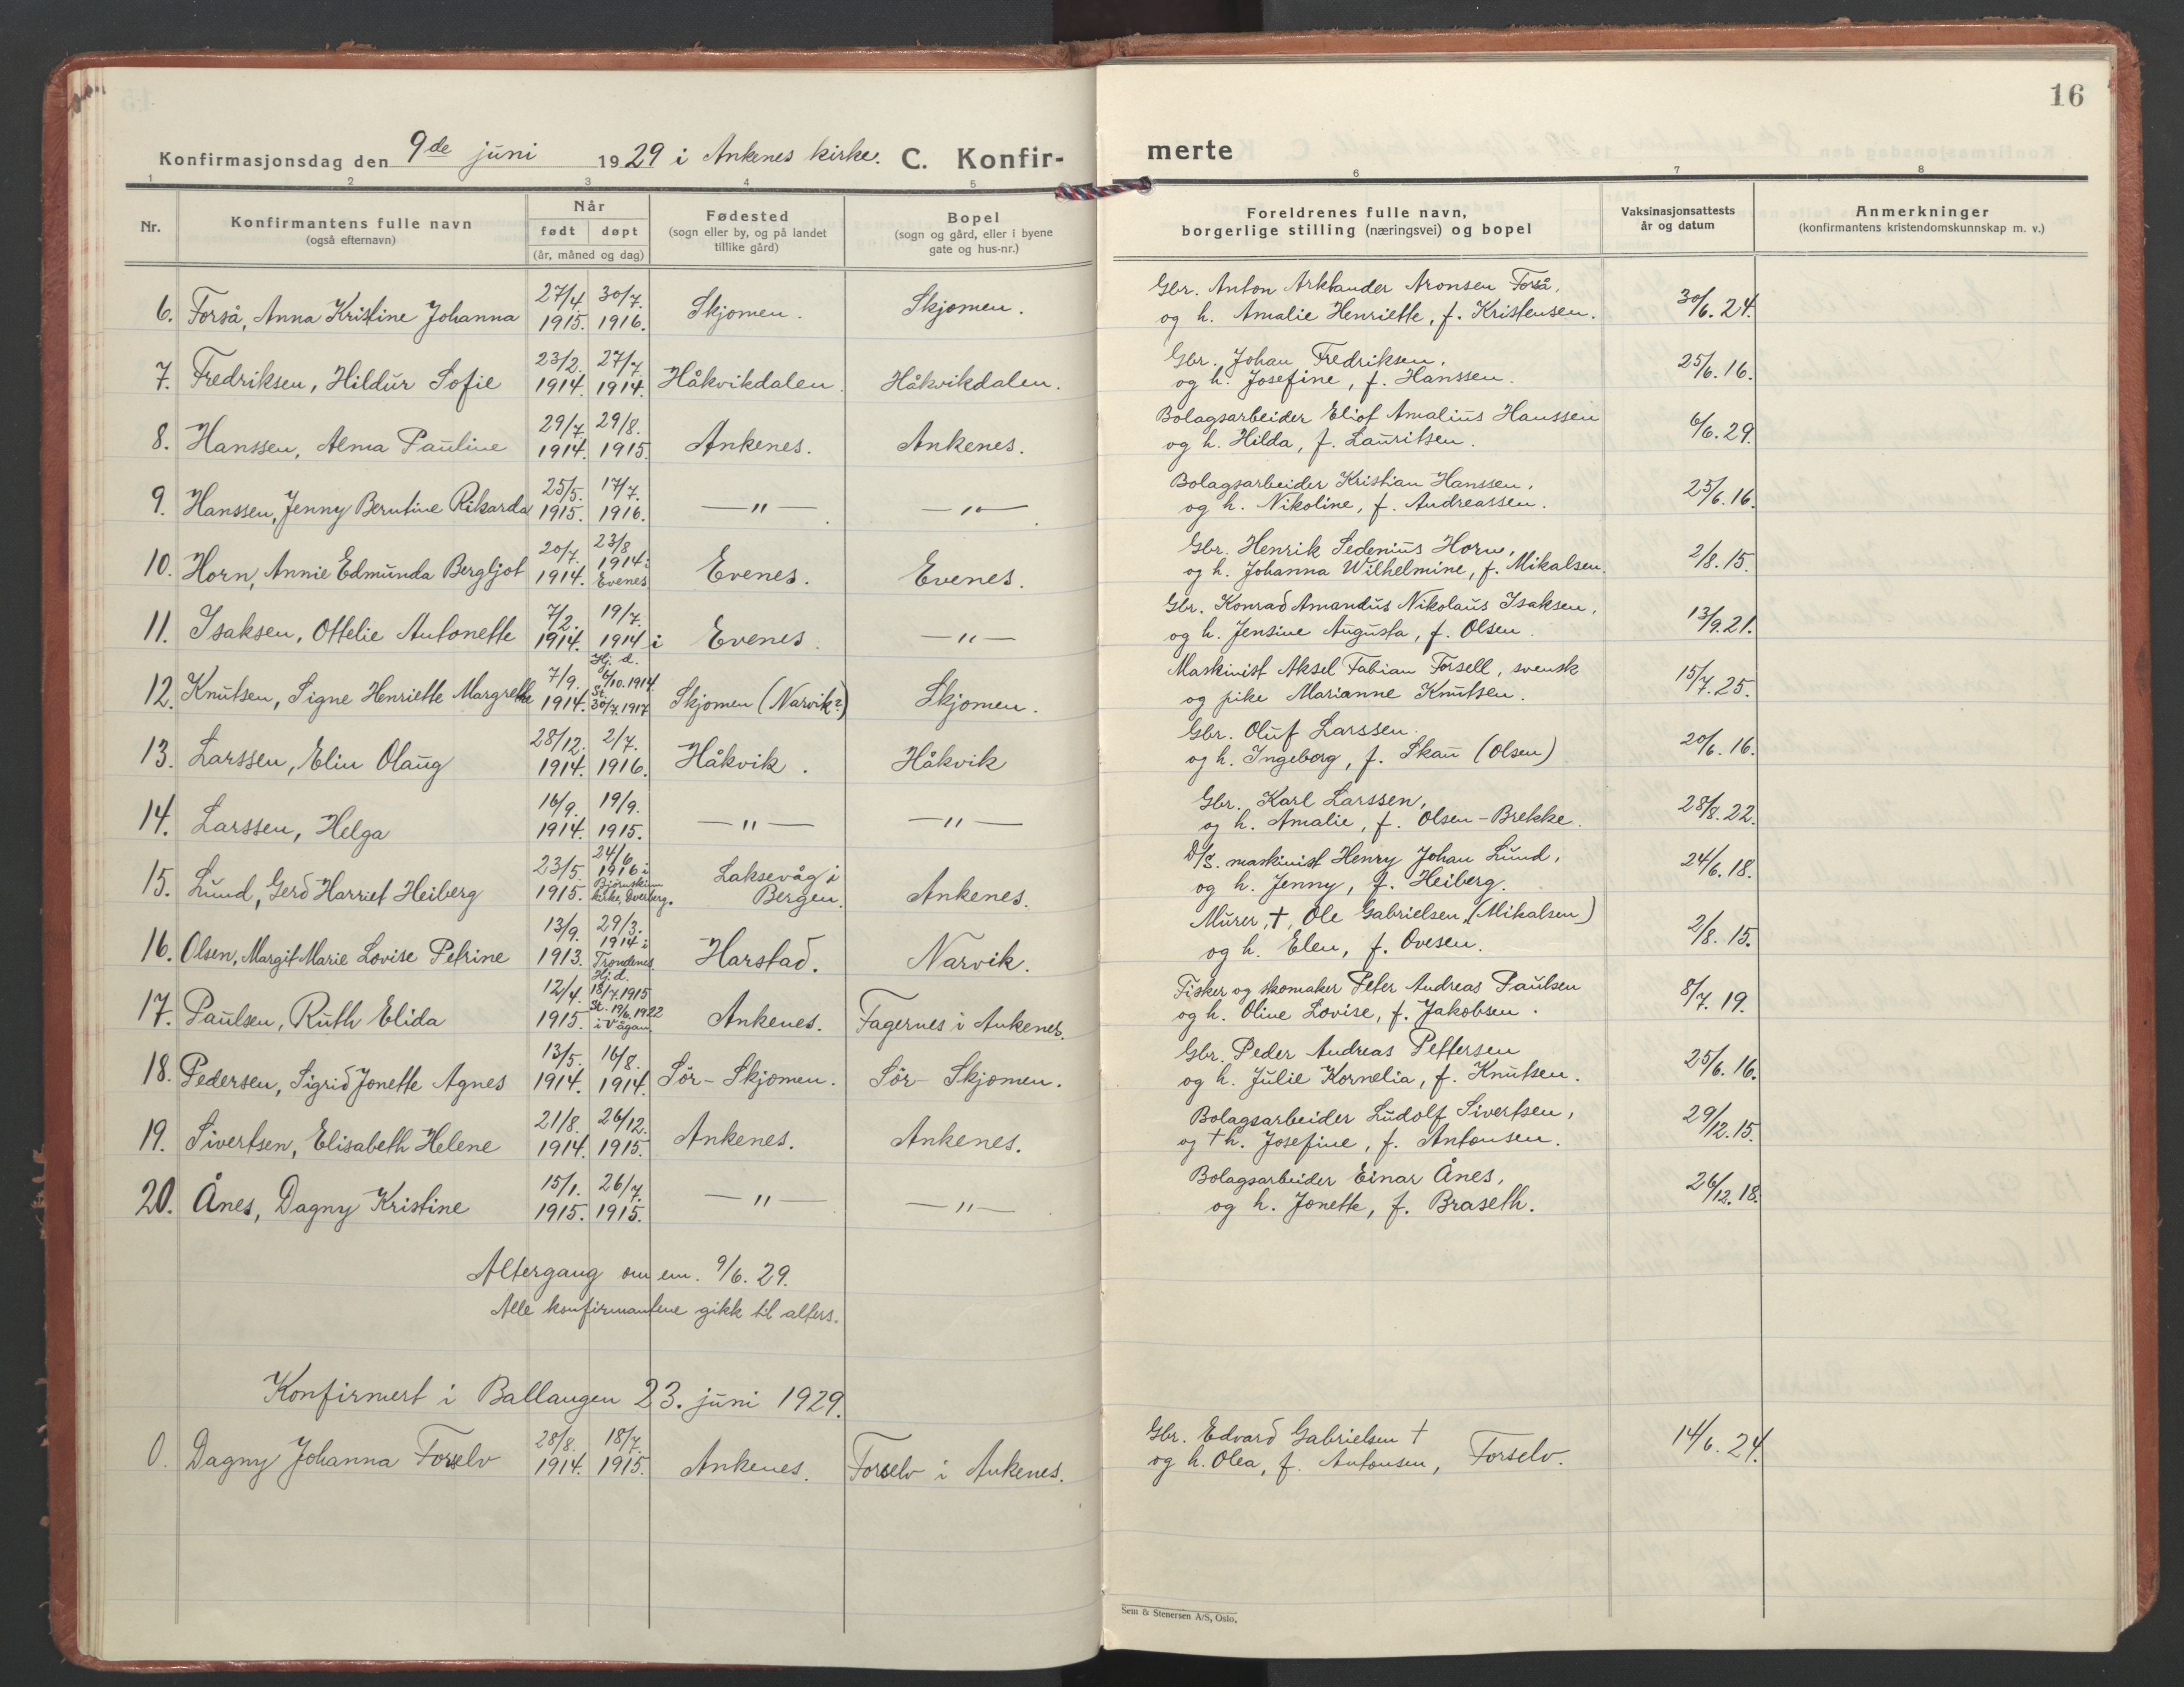 16
Konfirmasjonsdag den 9de juni 1929 i Ankenes kirke. C. Konfir-
merte
1 2 3 4 5 6 7 8
Nr.
Konfirmantens fulle navn
(også efternavn)
Når
født døpt
(år, måned og dag)
Fødested
(sogn eller by, og på landet
tillike gård)
Bopel
(sogn og gård, eller i byene
gate og hus-nr.)
Foreldrenes fulle navn,
borgerlige stilling (næringsvei) og bopel
Vaksinasjonsattests
år og datum
Anmerkninger
(konfirmantens kristendomskunnskap m. v.)
6. Forså, Anna Kristine Johanna 27/4. 1915. 30/7. 1916. Skjomen. Skjomen.
Gbr. Anton Arktander Aronsen Forså,
og h. Amalie Henriette, f. Kristensen. 30/6. 24.
7. Fredriksen, Hildur Sofie 23/2. 1914. 27/7. 1914. Håkvikdalen. Håkvikdalen.
Gbr. Johan Fredriksen,
og h. Josefine, f. Hanssen. 25/6. 16.
8. Hanssen, Alma Pauline 29/7. 1914. 29/8. 1915. Ankenes. Ankenes.
Bolagsarbeider Eliof Amalius Hanssen
og h. Hilda, f. Lauritsen. 6/6. 29.
9. Hanssen, Jenny Berntine Rikarda 25/5. 1915. 17/7. 1916. — " — — " —
Bolagsarbeider Kristian Hanssen,
og h. Nikoline, f. Andreassen. 25/6. 16.
10. Horn, Annie Edmunda Bergljot 20/7. 1914. 23/8 1914 i Evenes Evenes. Evenes.
Gbr. Henrik Sedenius Horn,
og h. Johanna Wilhelmine, f. Mikalsen. 2/8. 15.
11. Isaksen, Ottelie Antonette 7/2. 1914. 19/7. 1914 i Evenes. — " —
Gbr. Konrad Amandus Nikolaus Isaksen,
og h. Jensine Augusta, f. Olsen. 13/9. 21.
12. Knutsen, Signe Henriette Margrethe 7/9. 1914. Hj. d. 6/10. 1914. St. 30/7. 1917 Skjomen (Narvik?) Skjomen.
Maskinist Aksel Fabian Forsell, svensk
og pike Marianne Knutsen. 15/7. 25.
13. Larssen, Elin Olaug 28/12. 1914. 2/7. 1916. Håkvik. Håkvik
Gbr. Oluf Larssen
og h. Ingeborg, f. Skau (Olsen) 20/6. 16.
14. Larssen, Helga 16/9. 1914. 19/9. 1915. — " — — " —
Gbr. Karl Larssen,
og h. Amalie, f. Olsen-Brekke. 28/8. 22.
15. Lund, Gerd Harriet Heiberg 23/5. 1915. 24/6 1916 i Bjørnskinn kirke, Dverberg. Laksevåg i Bergen. Ankenes.
D/S. maskinist Henry Johan Lund,
og h. Jenny, f. Heiberg. 24/6. 18.
16. Olsen, Margit Marie Lovise Petrine 13/9. 1913. 29/3. 1914 i Trondenes Harstad. Narvik.
Murer, †, Ole Gabrielsen (Mikalsen)
og h. Elen, f. Ovesen. 2/8. 15.
17. Paulsen, Ruth Elida 12/4. 1915. Hj. d. 18/7. 1915 St. 19/6. 1922 i Vågan Ankenes. Fagernes i Ankenes.
Fisker og skomaker Peter Andreas Paulsen
og h. Oline Lovise, f. Jakobsen. 8/7. 19.
18. Pedersen, Sigrid Jonette Agnes 13/5. 1914. 16/8. 1914. Sör-Skjomen. Sör-Skjomen.
Gbr. Peder Andreas Pettersen
og h. Julie Kornelia, f. Knutsen. 25/6. 16.
19. Sivertsen, Elisabeth Helene 21/8. 1914. 26/12. 1915. Ankenes. Ankenes.
Bolagsarbeider Ludolf Sivertsen,
og † h. Josefine, f. Antonsen. 29/12. 15.
20. Ånes, Dagny Kristine 15/1. 1915. 26/7. 1915. — " — — " —
Bolagsarbeider Einar Ånes,
og h. Jonette, f. Braseth. 26/12. 18.
Altergang om em. 9/6. 29.
Alle konfirmantene gikk til alters.
Konfirmert i Ballangen 23. juni 1929.
0. Dagny Johanna Forselv 28/8. 1914. 18/7. 1915. Ankenes. Forselv i Ankenes.
Gbr. Edvard Gabrielsen †
og h. Olea, f. Antonsen, Forselv. 14/6. 24.
Sem & Stenersen A/S, Oslo.